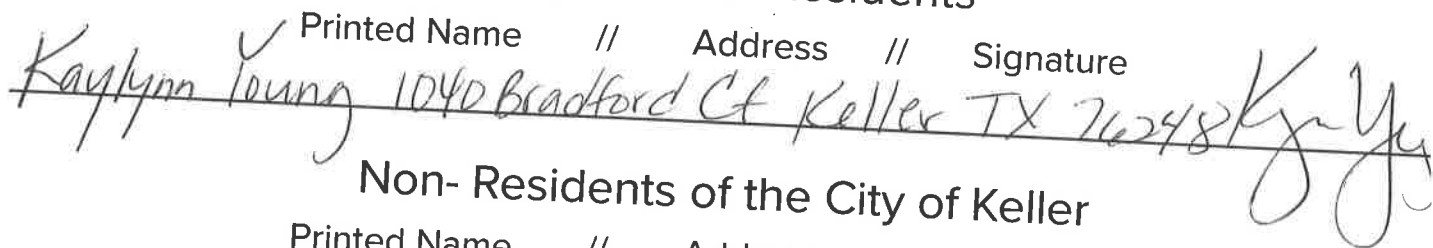 Printed Name // Address // Signature
Kaylynn Young 1040 Bradford Ct Keller TX 76248
Non- Residents of the City of Keller
Printed Name //